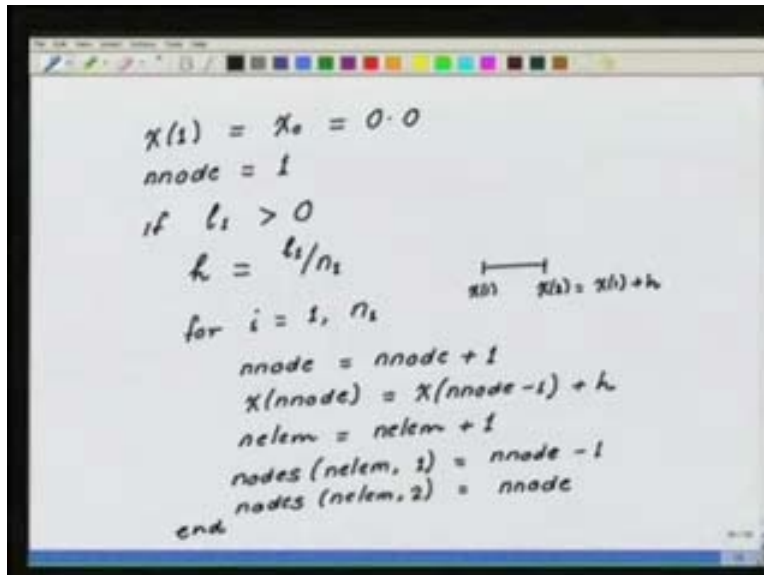 x(1) = x₀ = 0.0
nnode = 1
if l₁ > 0
h = l₁/n₁
x(1) x(2) = x(1) + h
for i = 1, n₁
nnode = nnode + 1
x(nnode) = x(nnode-1) + h
nelem = nelem + 1
nodes (nelem, 1) = nnode - 1
nodes (nelem, 2) = nnode
end